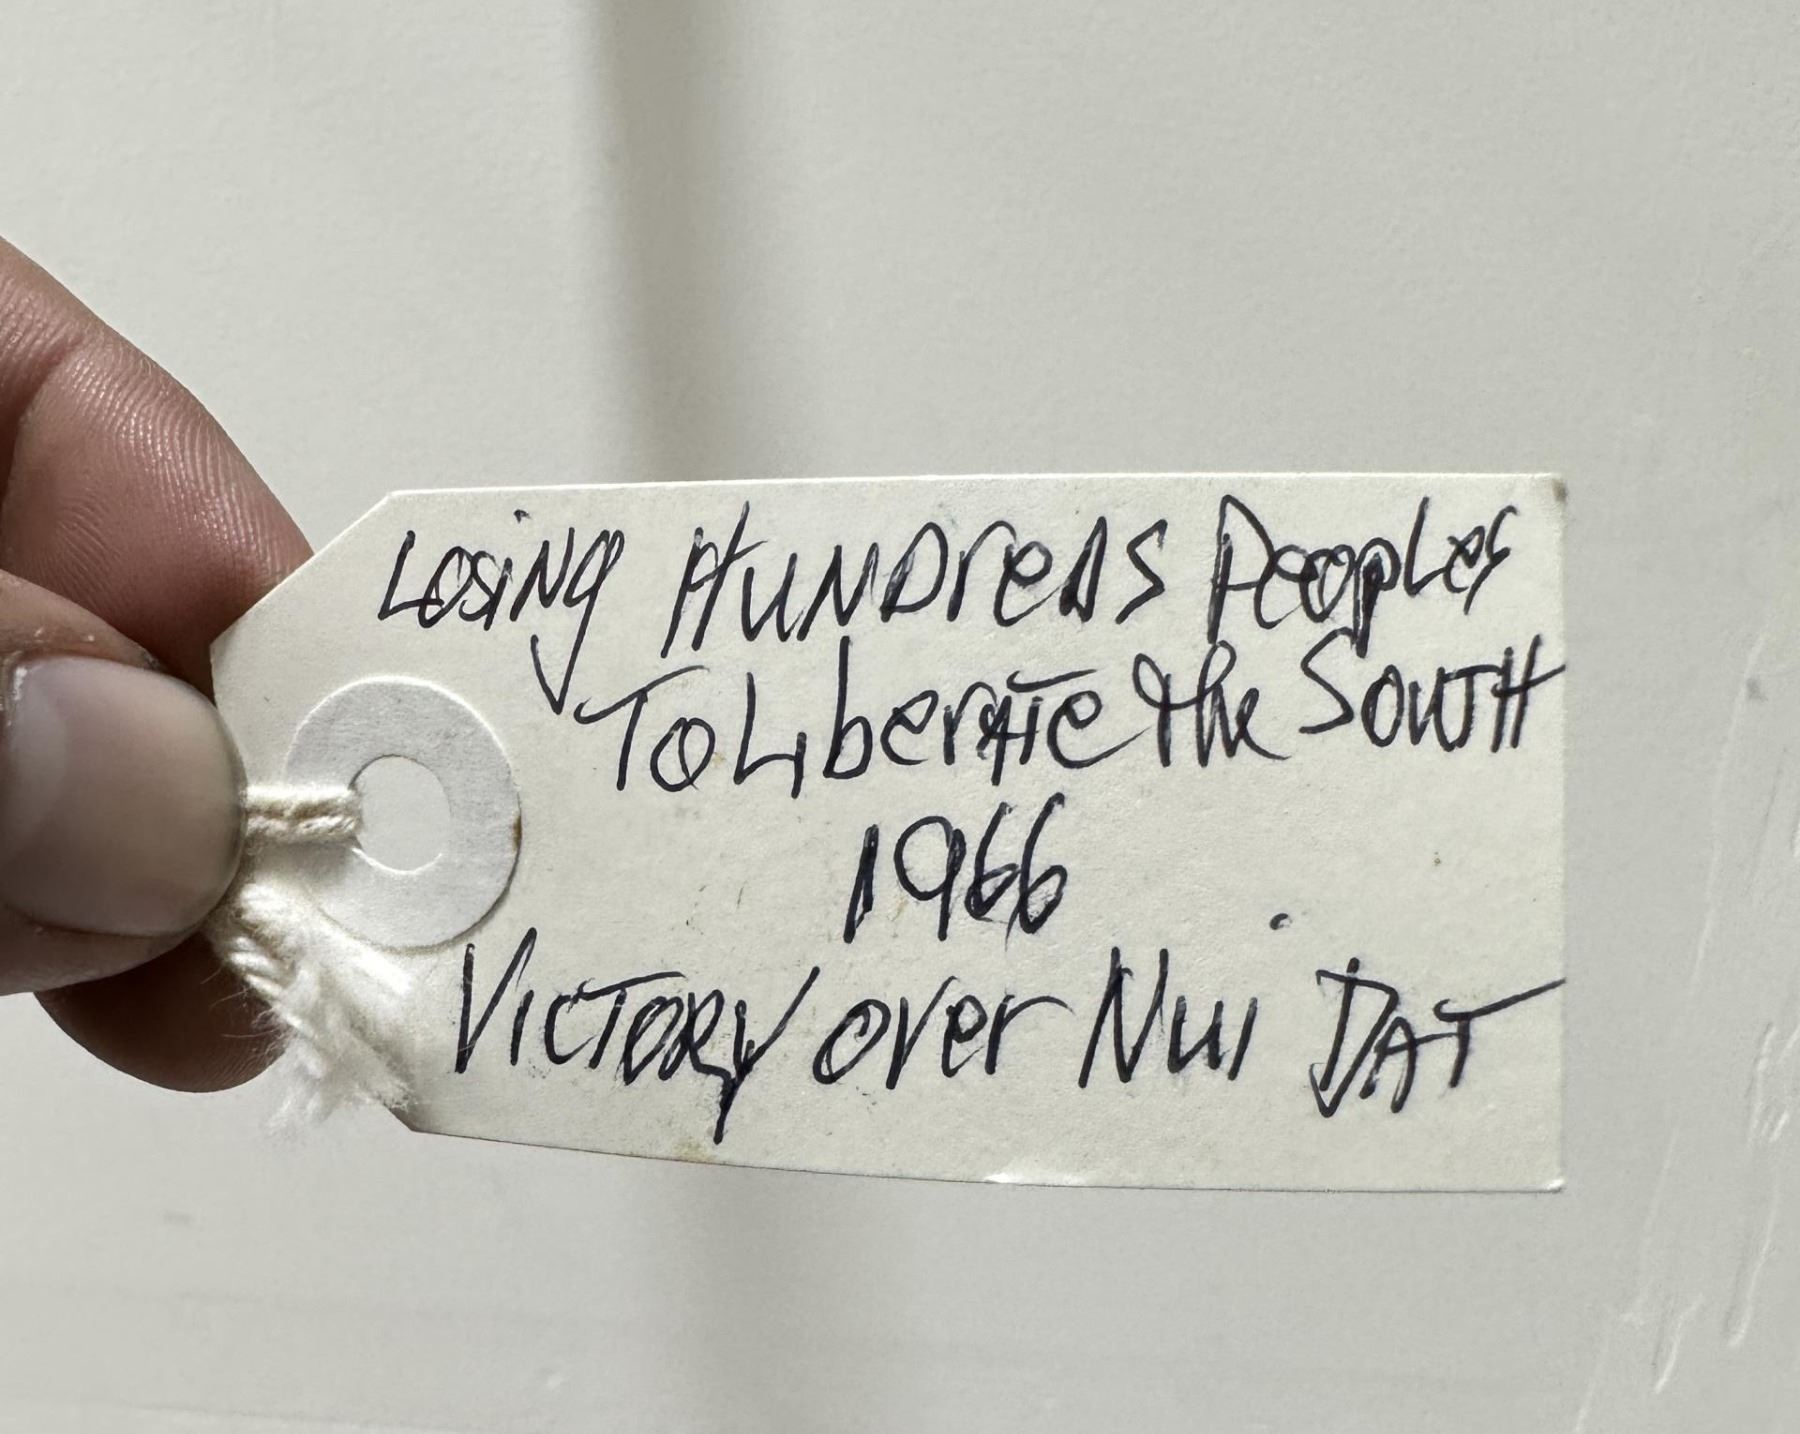 Losing Hundreds Peoples
To Liberate the South
1966
Victory over Nui Dat